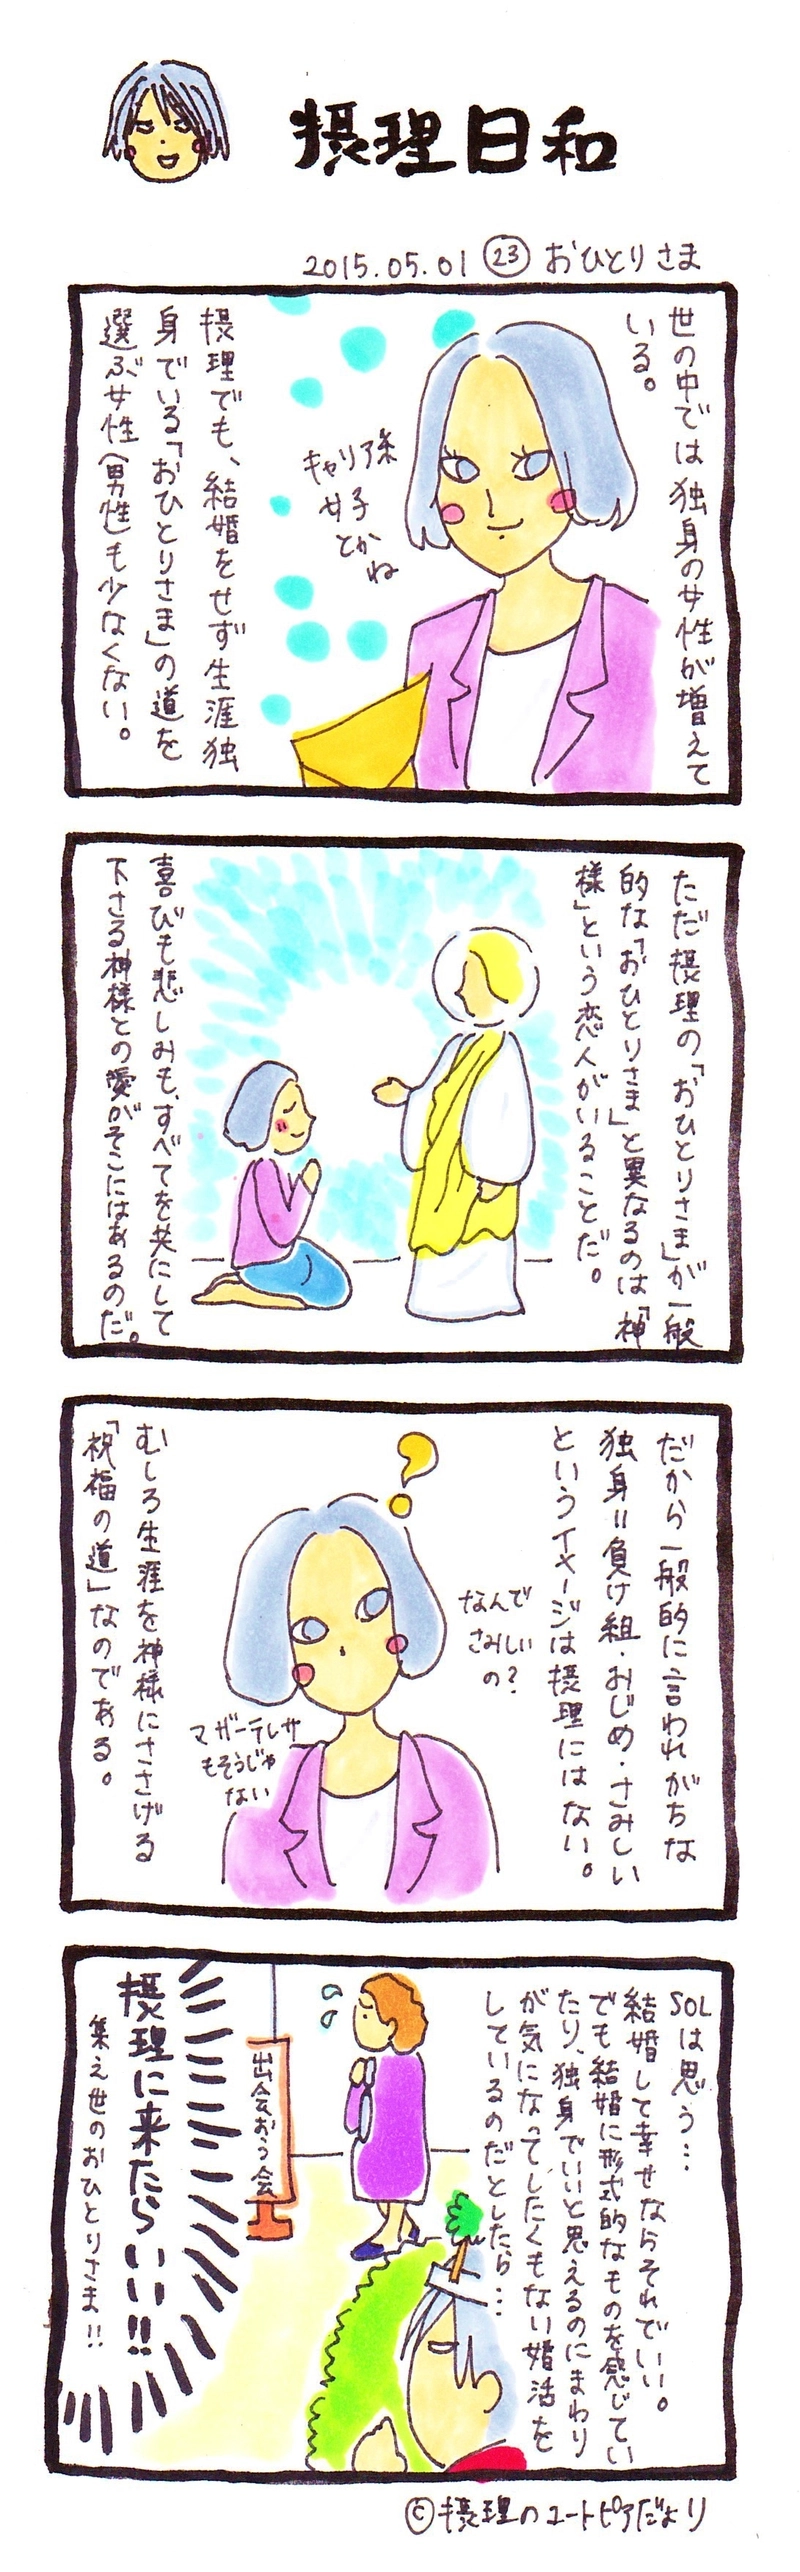 摂理日和
2015.05.01 ㉓ おひとりさま
世の中では独身の女性が増えて
いる。
キャリア系
女子
とか
ね
摂理でも、結婚をせず生涯独
身でいる「おひとりさま」の道を
選ぶ女性(男性)も少なくない。
ただ摂理の「おひとりさま」が一般
的な「おひとりさま」と異なるのは「神
様」という恋人がいることだ。
喜びも悲しみも、すべてを共にして
下さる神様との愛がそこにはあるのだ。
だから一般的に言われがちな
独身=負け組・おじめ・さみしい
というイメージは摂理にはない。
なんで
さみしい
の?
マザーテレサ
もそうじゃ
ない
むしろ生涯を神様にささげる
「祝福の道」なのである。
SOLは思う…
結婚して幸せならそれでいい。
でも結婚に形式的なものを感じてい
たり、独身でいいと思えるのにまわり
が気になってしたくもない婚活を
しているのだとしたら…
出会おう会
摂理に来たらいい!!
集え世のおひとりさま!!
©摂理のユートピアだより